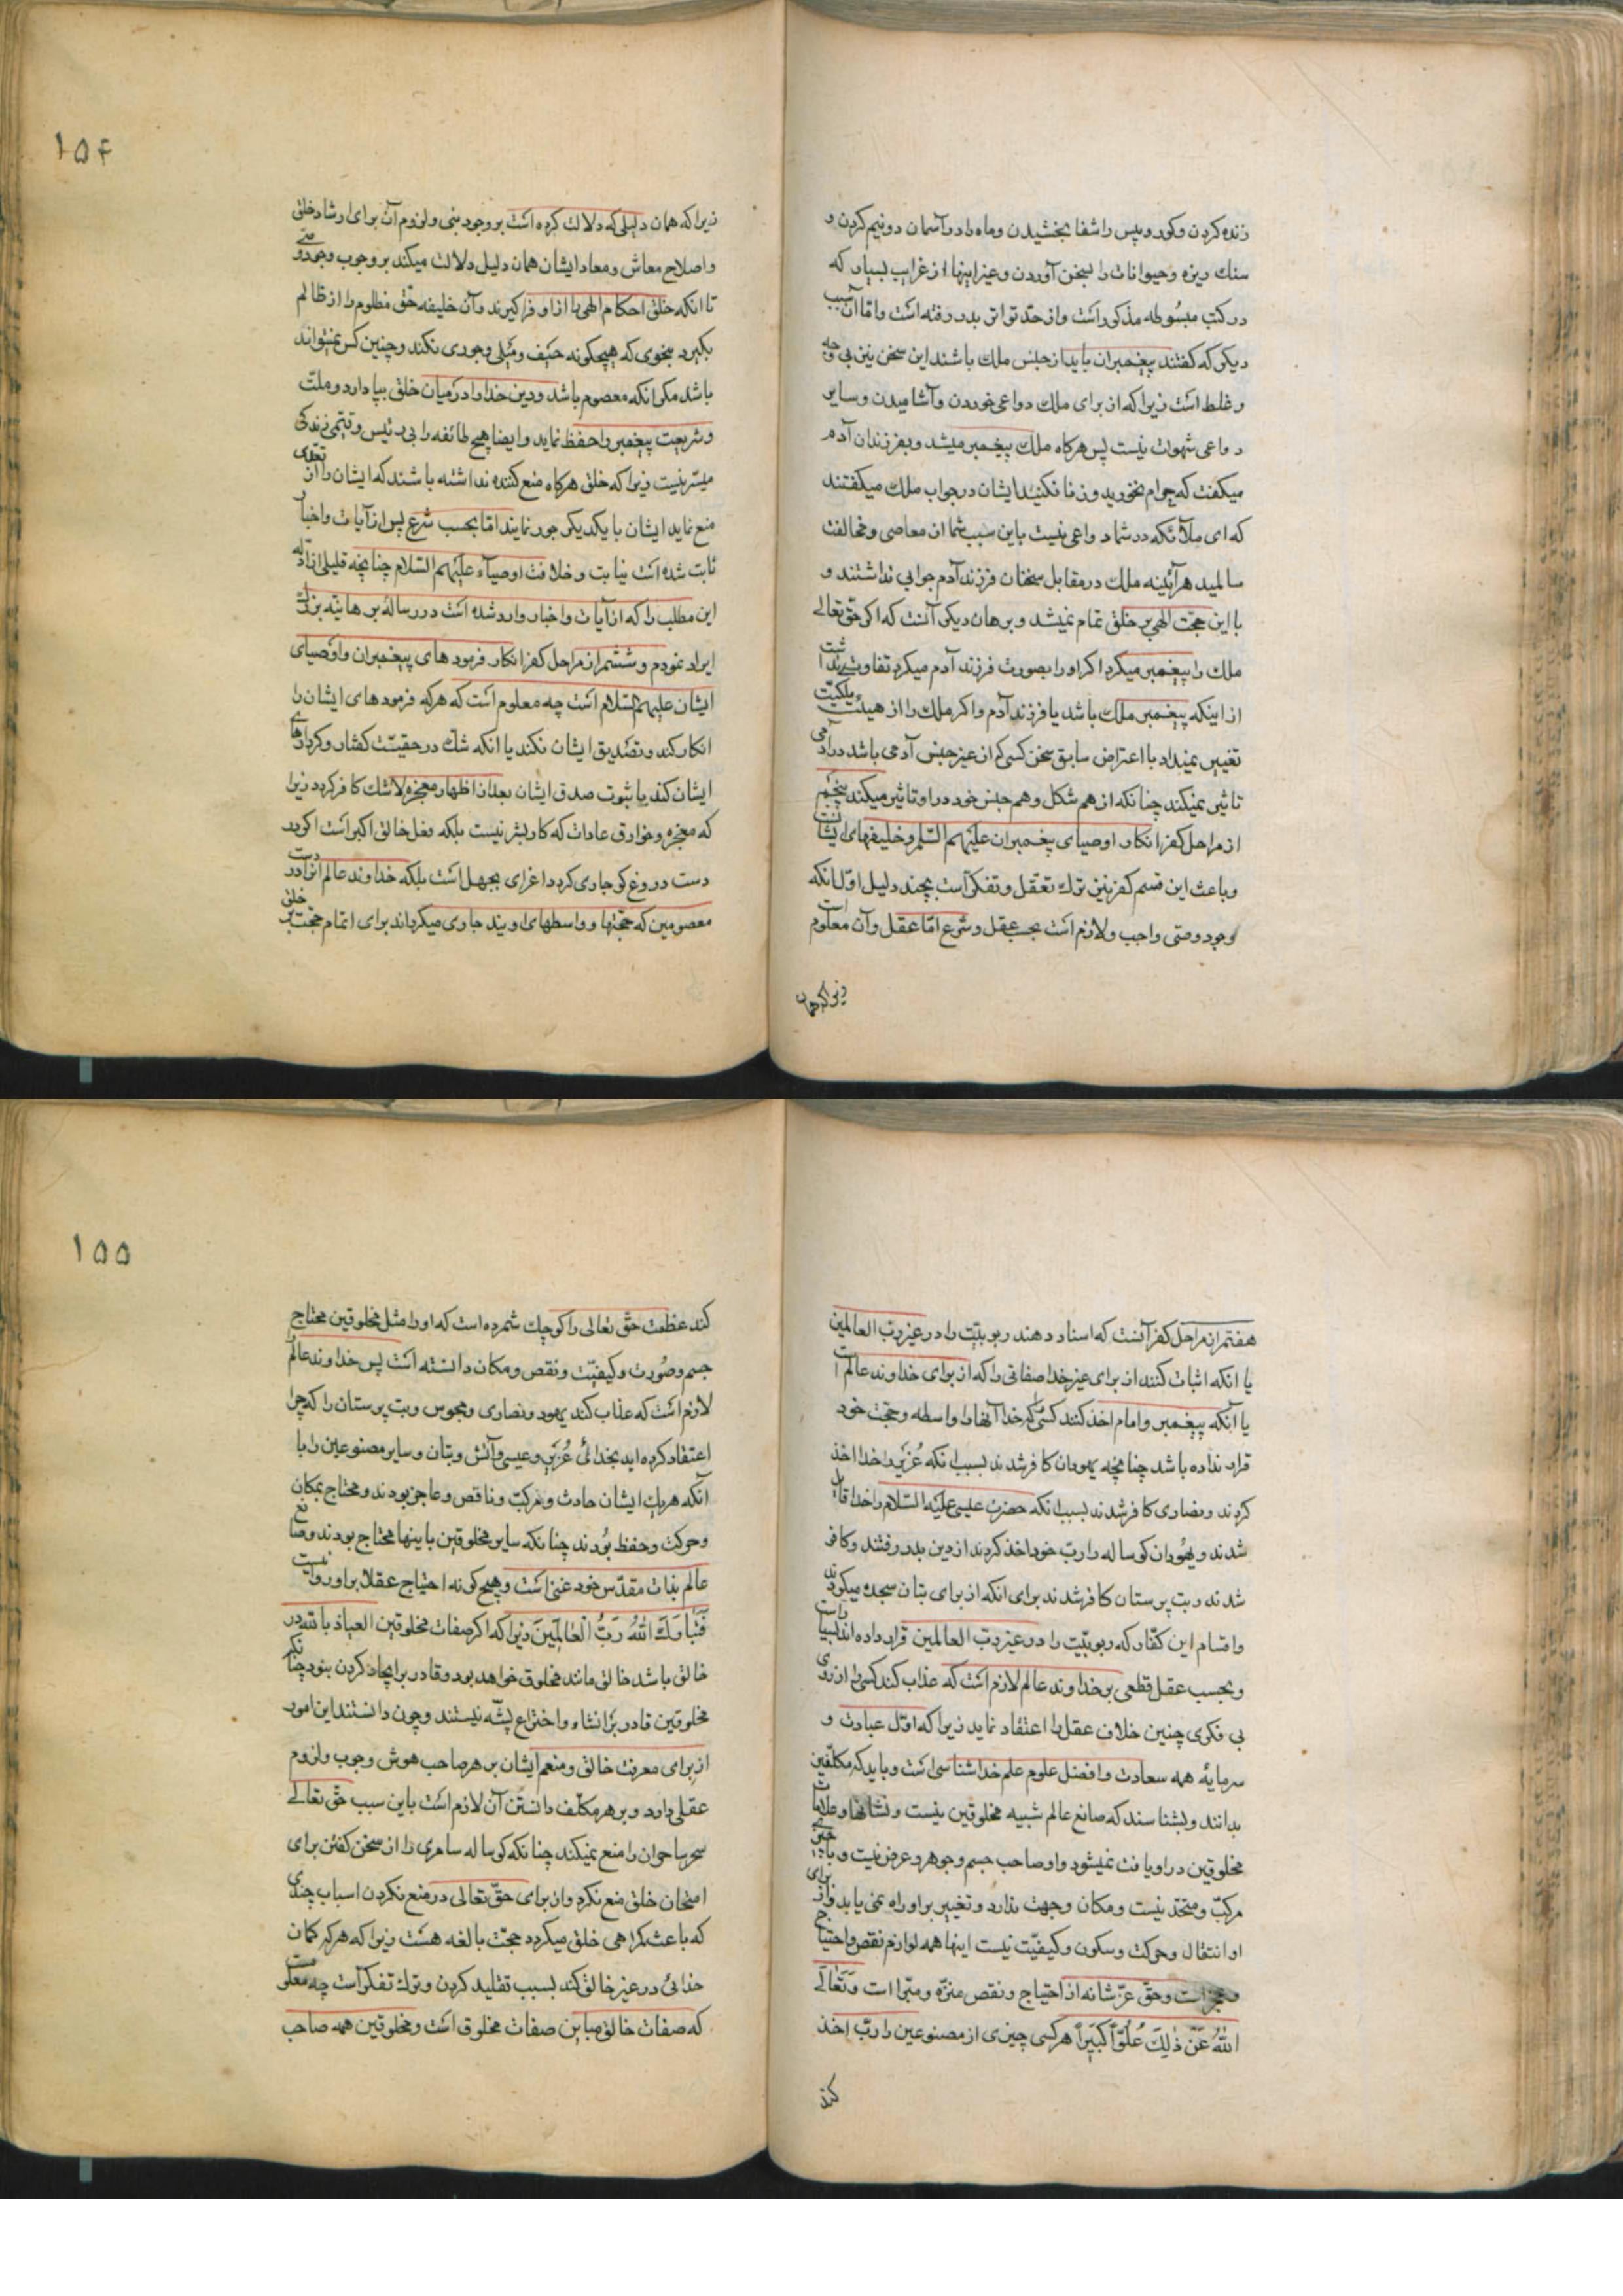 زنده کردن و کور و پیس را شفا بخشیدن و ماه را در آسمان دو نیم کردن و
سنك ریزه و حیوانات را بسخن آوردن و غیر اینها از غرایب بسیار که
در کتب مبسوطه مذکور است و از حد تواتر بدر رفته است و اما آن سبب
دیکر که کفتند پیغمبران باید از جنس ملك باشند این سخن نیز بی وجه
و غلط است زیرا که از برای ملك دواعی خوردن و آشامیدن و سایر
دواعی شهوات نیست پس هرکاه ملك پیغمبر میشد و بفرزندان آدم
میکفت که حرام نخورید و زنا نکنید ایشان در جواب ملك میکفتند
که ای ملائکه در شما دواعی نیست باین سبب شما از معاصی و مخالفت
سالمید هرآینه ملك در مقابل سخنان فرزند آدم جوابی نداشتند و
با این حجت الهی بر خلق تمام نمیشد و برهان دیکر آنست که اکر حق تعالی
ملك را پیغمبر میکرد اکر او را بصورت فرزند آدم میکرد تفاوت نداشت
از اینکه پیغمبر ملك باشد یا فرزند آدم و اکر ملك را از هیئت ملکیّت
تغییر نمیداد با اعتراض سابق سخن کسی که از غیر جنس آدمی باشد در آدمی
تاثیر نمیکند چنانکه از هم شکل و هم جنس خود در او تاثیر میکند پنجم
از مراحل کفر انکار اوصیای پیغمبران علیهم السلم و خلیفهای ایشانست
و باعث این قسم کفر نیز ترك تعقل و تفکر است بچند دلیل اول انکه
وجود وصی واجب و لازم است بحسب عقل و شرع اما عقل و آن معلوم است
زیرا که همان
۱۵۴
زیرا که همان دلیلی که دلالت کرده است بر وجود نبی و لزوم آن برای ارشاد خلق
و اصلاح معاش و معاد ایشان همان دلیل دلالت میکند بر وجوب وجود وصی
تا انکه خلق احکام الهی را از او فرا کیرند و آن خلیفه حق مظلوم را از ظالم
بکیرد بنحوی که هیچکونه حیف و میلی و جوری نکند و چنین کس نمیتواند
باشد مکر انکه معصوم باشد و دین خدا را در میان خلق بپا دارد و ملت
و شریعت پیغمبر را حفظ نماید و ایضا هیچ طائفه را بی رئیس و قیّمی زندکی
میسر نیست زیرا که خلق هرکاه منع کننده نداشته باشند که ایشان را از تعدی
منع نماید ایشان با یکدیکر جور نمایند اما بحسب شرع پس از آیات و اخبار
ثابت شده است نیابت و خلافت اوصیاء علیهم السلام چنانچه قلیلی از ادله
این مطلب را که از آیات و اخبار وارد شده است در رساله برهانیه بزرك
ایراد نمودم و ششم از مراحل کفر انکار فرمود های پیغمبران و اوصیای
ایشان علیهم السلام است چه معلوم است که هرکه فرمود های ایشان را
انکار کند و تصدیق ایشان نکند یا انکه شك در حقیّت کفتار و کردارهای
ایشان کند با ثبوت صدق ایشان بعد از اظهار معجزه لاشك کافر کردد زیرا
که معجزه و خوارق عادات که کار بشر نیست بلکه فعل خالق اکبر است اکر در
دست دروغ کو جاری کردد اغرای بجهل است بلکه خداوند عالم انرا در دست
معصومین که حجتها و واسطهای اویند جاری میکرداند برای اتمام حجت بر خلق
هفتم از مراحل کفر آنست که اسناد دهند ربوبیّت را در غیر ربّ العالمین
یا انکه اثبات کنند از برای غیر خدا صفاتی را که از برای خداوند عالم است
یا آنکه پیغمبر و امام اخذ کنند کسی را که خدا آنها را واسطه و حجت خود
قرار نداده باشد چنانچه یهودان کافر شدند بسبب انکه عُزیر را خدا اخذ
کردند و نصاری کافر شدند بسبب انکه حضرت عیسی علیه السلام را خدا قایل
شدند و یهودان کوساله را ربّ خود اخذ کردند از دین بدر رفتند و کافر
شدند و بت پرستان کافر شدند برای انکه از برای بتان سجده میکردند
و اقسام این کفار که ربوبیّت را در غیر ربّ العالمین قرار داده اند بسیار است
و بحسب عقل قطعی بر خداوند عالم لازم است که عذاب کند کسی را از روی
بی فکری چنین خلاف عقل را اعتقاد نماید زیرا که اول عبادت و
سرمایه همه سعادت و افضل علوم علم خدا شناسی است و باید که مکلفین
بدانند و بشناسند که صانع عالم شبیه مخلوقین نیست و نشانها و علامات
مخلوقین در او یافت نمیشود و او صاحب جسم و جوهر و عرض نیست و با چیزی
مرکب و متحد نیست و مکان و جهت ندارد و تغییر بر او راه نمی یابد و از برای
او انتقال و حرکت و سکون و کیفیّت نیست اینها همه لوازم نقص و احتیاج
و عجز است و حق عزّ شانه از احتیاج و نقص منزّه و مبرّا است وَتَعالَی
اللهُ عَنْ ذٰلِكَ عُلُوّاً کَبیراً هر کسی چیزی از مصنوعین را ربّ اخذ
کند
۱۵۵
کند عظمت حق تعالی را کوچك شمرده است که او را مثل مخلوقین محتاج
جسم و صورت و کیفیّت و نقص و مکان دانسته است پس خداوند عالم را
لازم است که عذاب کند یهود و نصاری و مجوس و بت پرستان را که چرا
اعتقاد کرده اید بخدائی عُزیر و عیسی و آتش و بتان و سایر مصنوعین را با
آنکه هر یك ایشان حادث و مرکب و ناقص و عاجز بودند و محتاج بمکان
و حرکت و حفظ بودند چنانکه سایر مخلوقین باینها محتاج بودند و صانع
عالم بذات مقدس خود غنی است و هیچ کونه احتیاج عقلا بر او روا نیست
فَتَبارَكَ اللهُ رَبُّ الْعالَمینَ زیرا که اکر صفات مخلوقین العیاذ بالله در
خالق باشد خالق مانند مخلوق خواهد بود و قادر بر ایجاد کردن نبود چنانکه
مخلوقین قادر بر انشاء و اختراع پشّه نیستند و چون دانستند این امور
از برای معرفت خالق و منعم ایشان بر هر صاحب هوش وجوب و لزوم
عقلی دارد و بر هر مکلف دانستن آن لازم است باین سبب حق تعالی
سحر ساحران را منع نمیکند چنانکه کوساله سامری را از سخن کفتن برای
امتحان خلق منع نکرد و از برای حق تعالی در منع نکردن اسباب چندی
که باعث کمراهی خلق میکردد حجت بالغه هست زیرا که هرکه کمان
خدائی در غیر خالق کند بسبب تقلید کردن و ترك تفکر است چه معلومست
که صفات خالق مباین صفات مخلوق است و مخلوقین همه صاحب